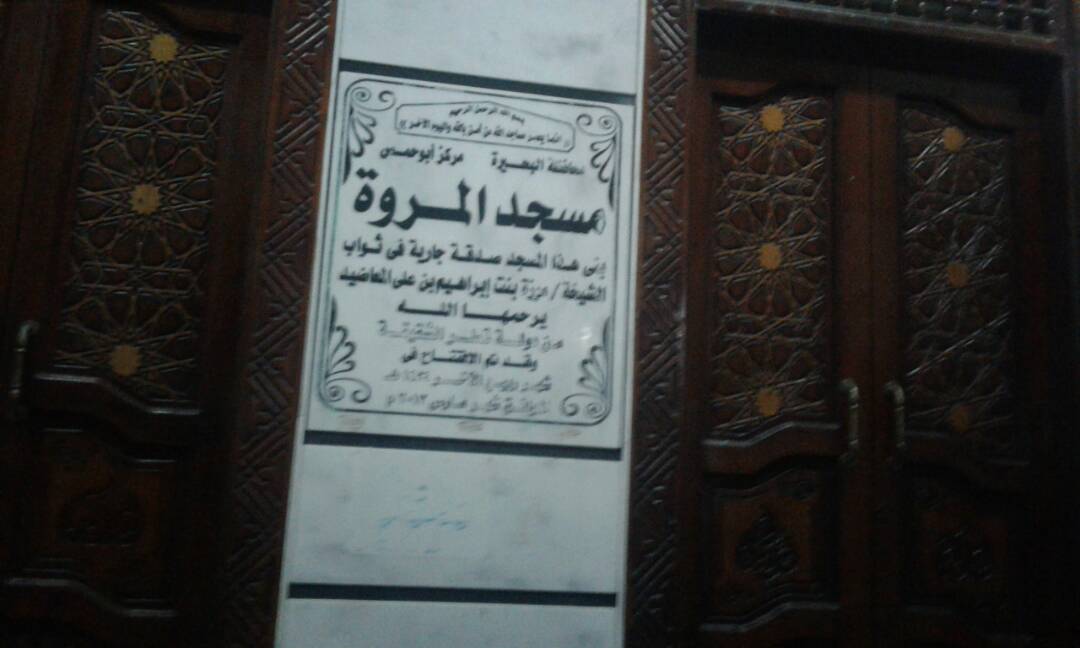 بسم الله الرحمن الرحيم
(( انما يعمر مساجد الله من آمن بالله واليوم الآخر ))
محافظة البحيرة مركز أبوحمص
مسجد المروة
بنى هذا المسجد صدقة جارية فى ثواب
الشيخة / موزة بنت إبراهيم بن على المعاضيد
يرحمها الله
من دولة قطر الشقيقة
وقد تم الافتتاح فى
شهر ربيع الآخر ١٤٣٤ هـ
الموافق شهر مارس ٢٠١٣ م